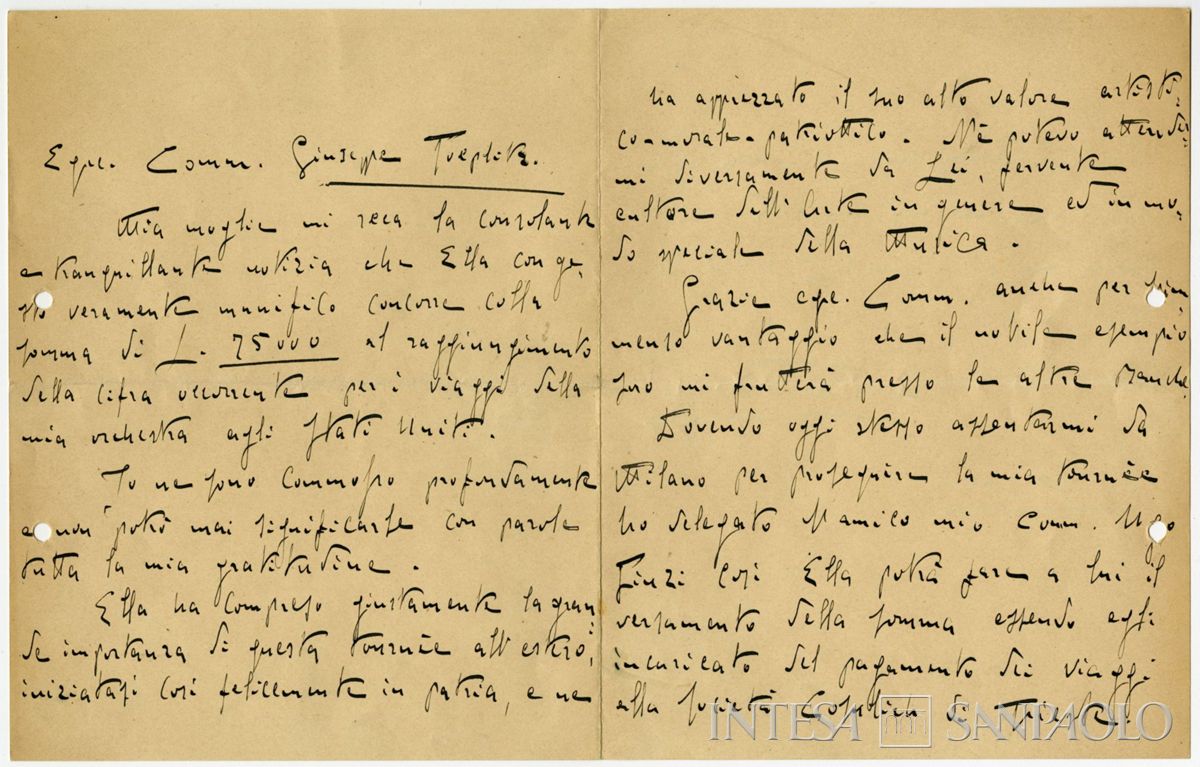 Egre. Comm. Giuseppe Toeplitz.
Mia moglie mi reca la consolante
e tranquillante notizia che Ella con ge,
sto veramente munifico concorre colla
somma di L. 75000 al raggiungimento
della cifra occorrente per i viaggi della
mia orchestra agli Stati Uniti.
Io ne sono commosso profondamente
e non potrò mai significarle con parole
tutta la mia gratitudine.
Ella ha compreso giustamente la gran,
de importanza di questa tournée all'estero,
iniziatasi così felicemente in patria, e ne
ha apprezzato il suo alto valore artisti,
co-morale-patriottico. Nè potevo attender,
mi diversamente da Lei, fervente
cultore dell'Arte in genere ed in mo,
do speciale della Musica.
Grazie egre. Comm. anche per l'im,
menso vantaggio che il nobile esempio
suo mi frutterà presso le altre Banche.
Dovendo oggi stesso assentarmi da
Milano per proseguire la mia tournée
ho delegato l'amico mio Comm. Ugo
Finzi così Ella potrà fare a lui il
versamento della somma essendo egli
incaricato del pagamento dei viaggi
alla Società Cosulich di Trieste.
INTESA SANPAOLO